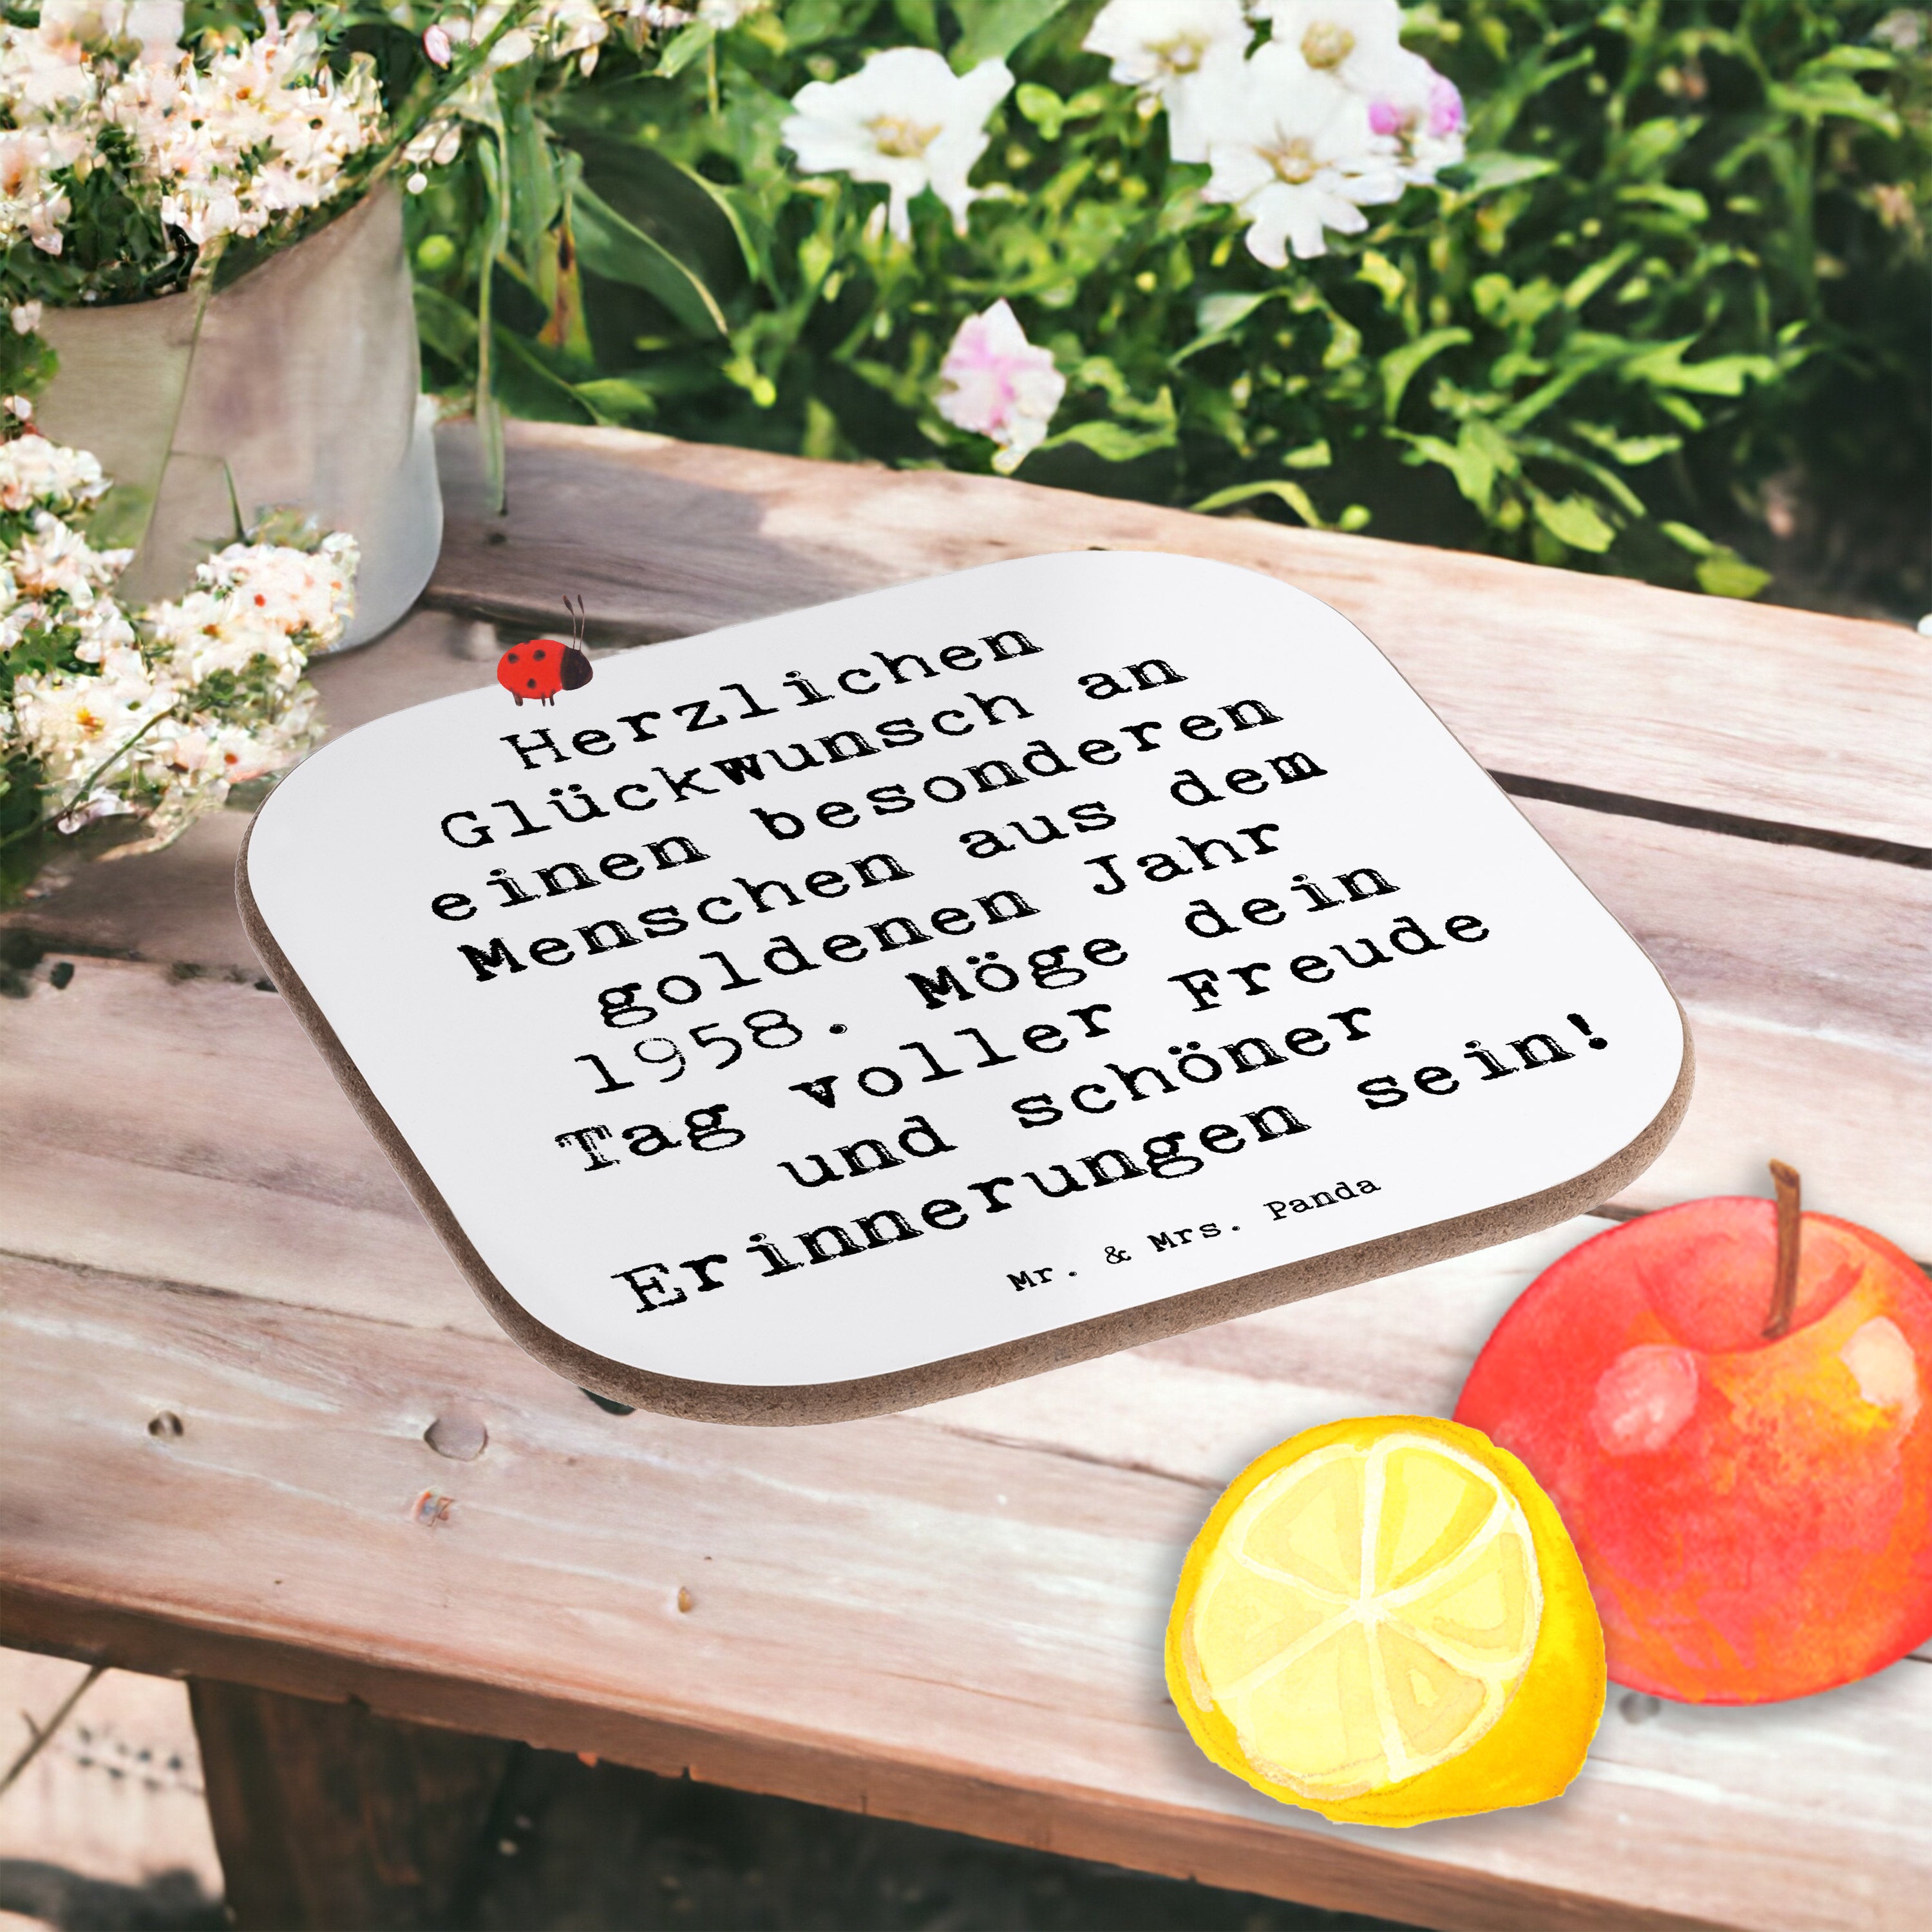 Herzlichen
Glückwunsch an
einen besonderen
Menschen aus dem
goldenen Jahr
1958. Möge dein
Tag voller Freude
und schöner
Erinnerungen sein!
Mr. & Mrs. Panda